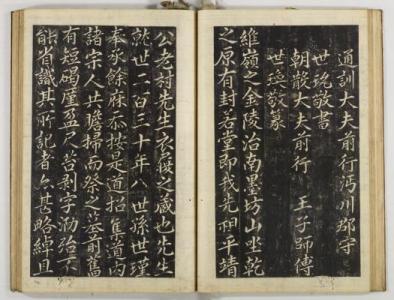 通訓大夫前行沔川郡守
世珌敬書
朝散大夫前行 王子師傅
世瑍敬篆
維嶺之金陵治南臺坊山坐乾
之原有封若堂即我先祖平靖
公老村先生衣履之藏也先生
就世二百三十年八世孫世瑾
奉承餘庥忝按是道招隹道內
諸宗人共瞻掃而祭之墓前舊
有短碣廑盈尺苔剝字泐殆不
能省識其所記者亦甚略綽且